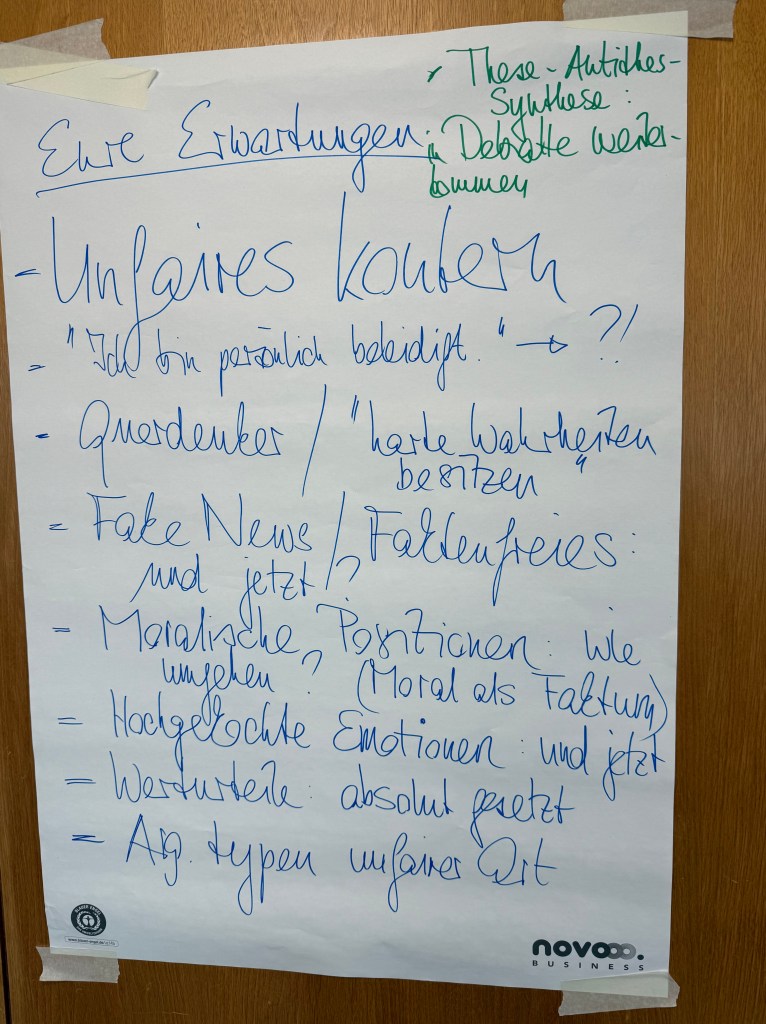 Eure Erwartungen
✓ These-Antithes-
Synthese:
in Debatte weiter-
kommen
- Unfaires kontern
- "Ich bin persönlich beleidigt." → ?!
- Querdenker / "harte Wahrheiten
besitzen"
- Fake News / Faktenfreies:
und jetzt?
- Moralische Positionen: wie
umgehen? (Moral als Faktum)
- Hochgekochte Emotionen: und jetzt
- Werturteile: absolut gesetzt
- Arg. typen unfairer Art
novooo.
BUSINESS